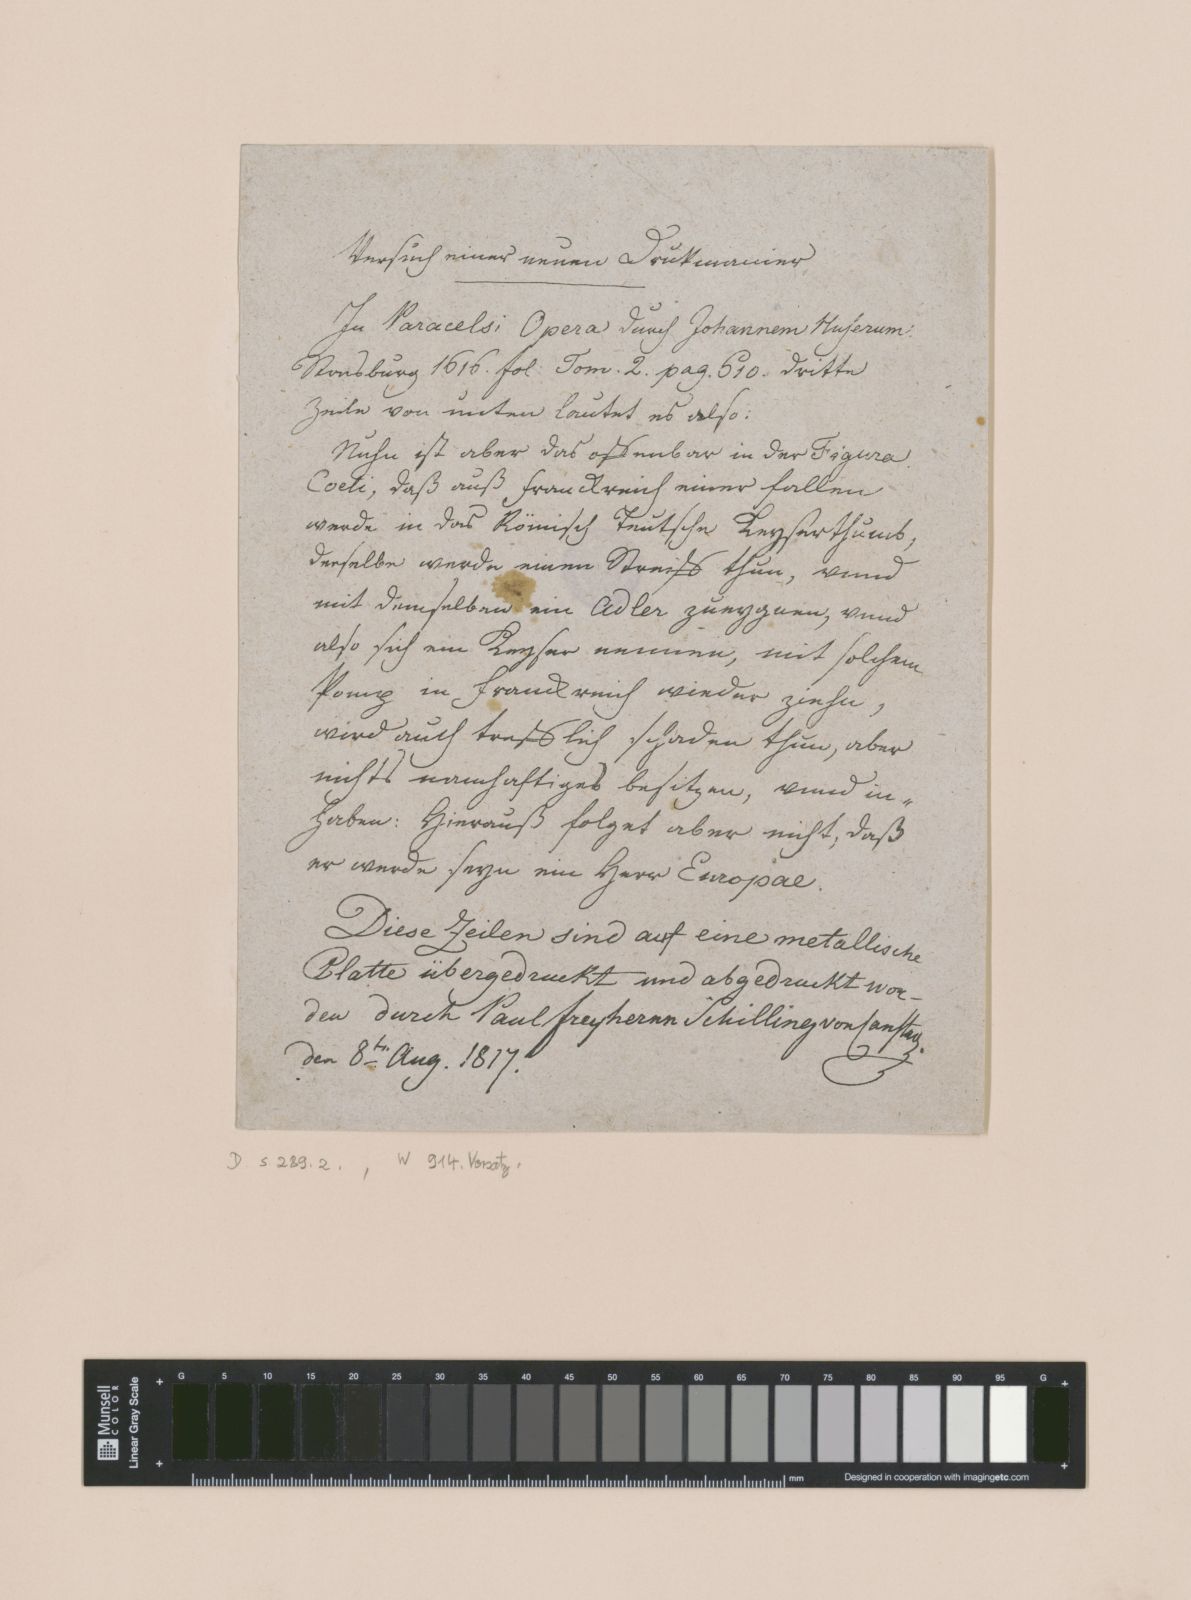 Versuch einer neuen Drukmanier
In Paracelsi Opera durch Johannem Huserum.
Strasburg 1616. fol. Tom. 2. pag. 610. dritte
Zeile von unten lautet es also:
Nuhn ist aber das offenbar in der Figura
Coeli, daß auß Franckreich einer fallen
werde in das Römisch Teutsche Keyserthumb,
derselbe werde einen Streiff thun, vnnd
mit demselben ein Adler zueygnen, vnnd
also sich ein Keyser nennen, mit solchem
Pomp in Franckreich wieder ziehn,
wird auch trefflich schaden thun, aber
nichts namhaftiges besitzen, vnnd in„
haben: Hierauß folget aber nicht, daß
er werde seyn ein Herr Europae.
Diese Zeilen sind auf eine metallische
Platte übergedruckt und abgedruckt wor-
den durch Paul Freyherrn Schilling von Canstadt.
den 8ten Aug. 1817.
D s 289. 2. , W 914. Vorsatz.
Munsell
COLOR
Linear Gray Scale
G 5 10 15 20 25 30 35 40 45 50 55 60 65 70 75 80 85 90 95 G
mm
Designed in cooperation with imagingetc.com